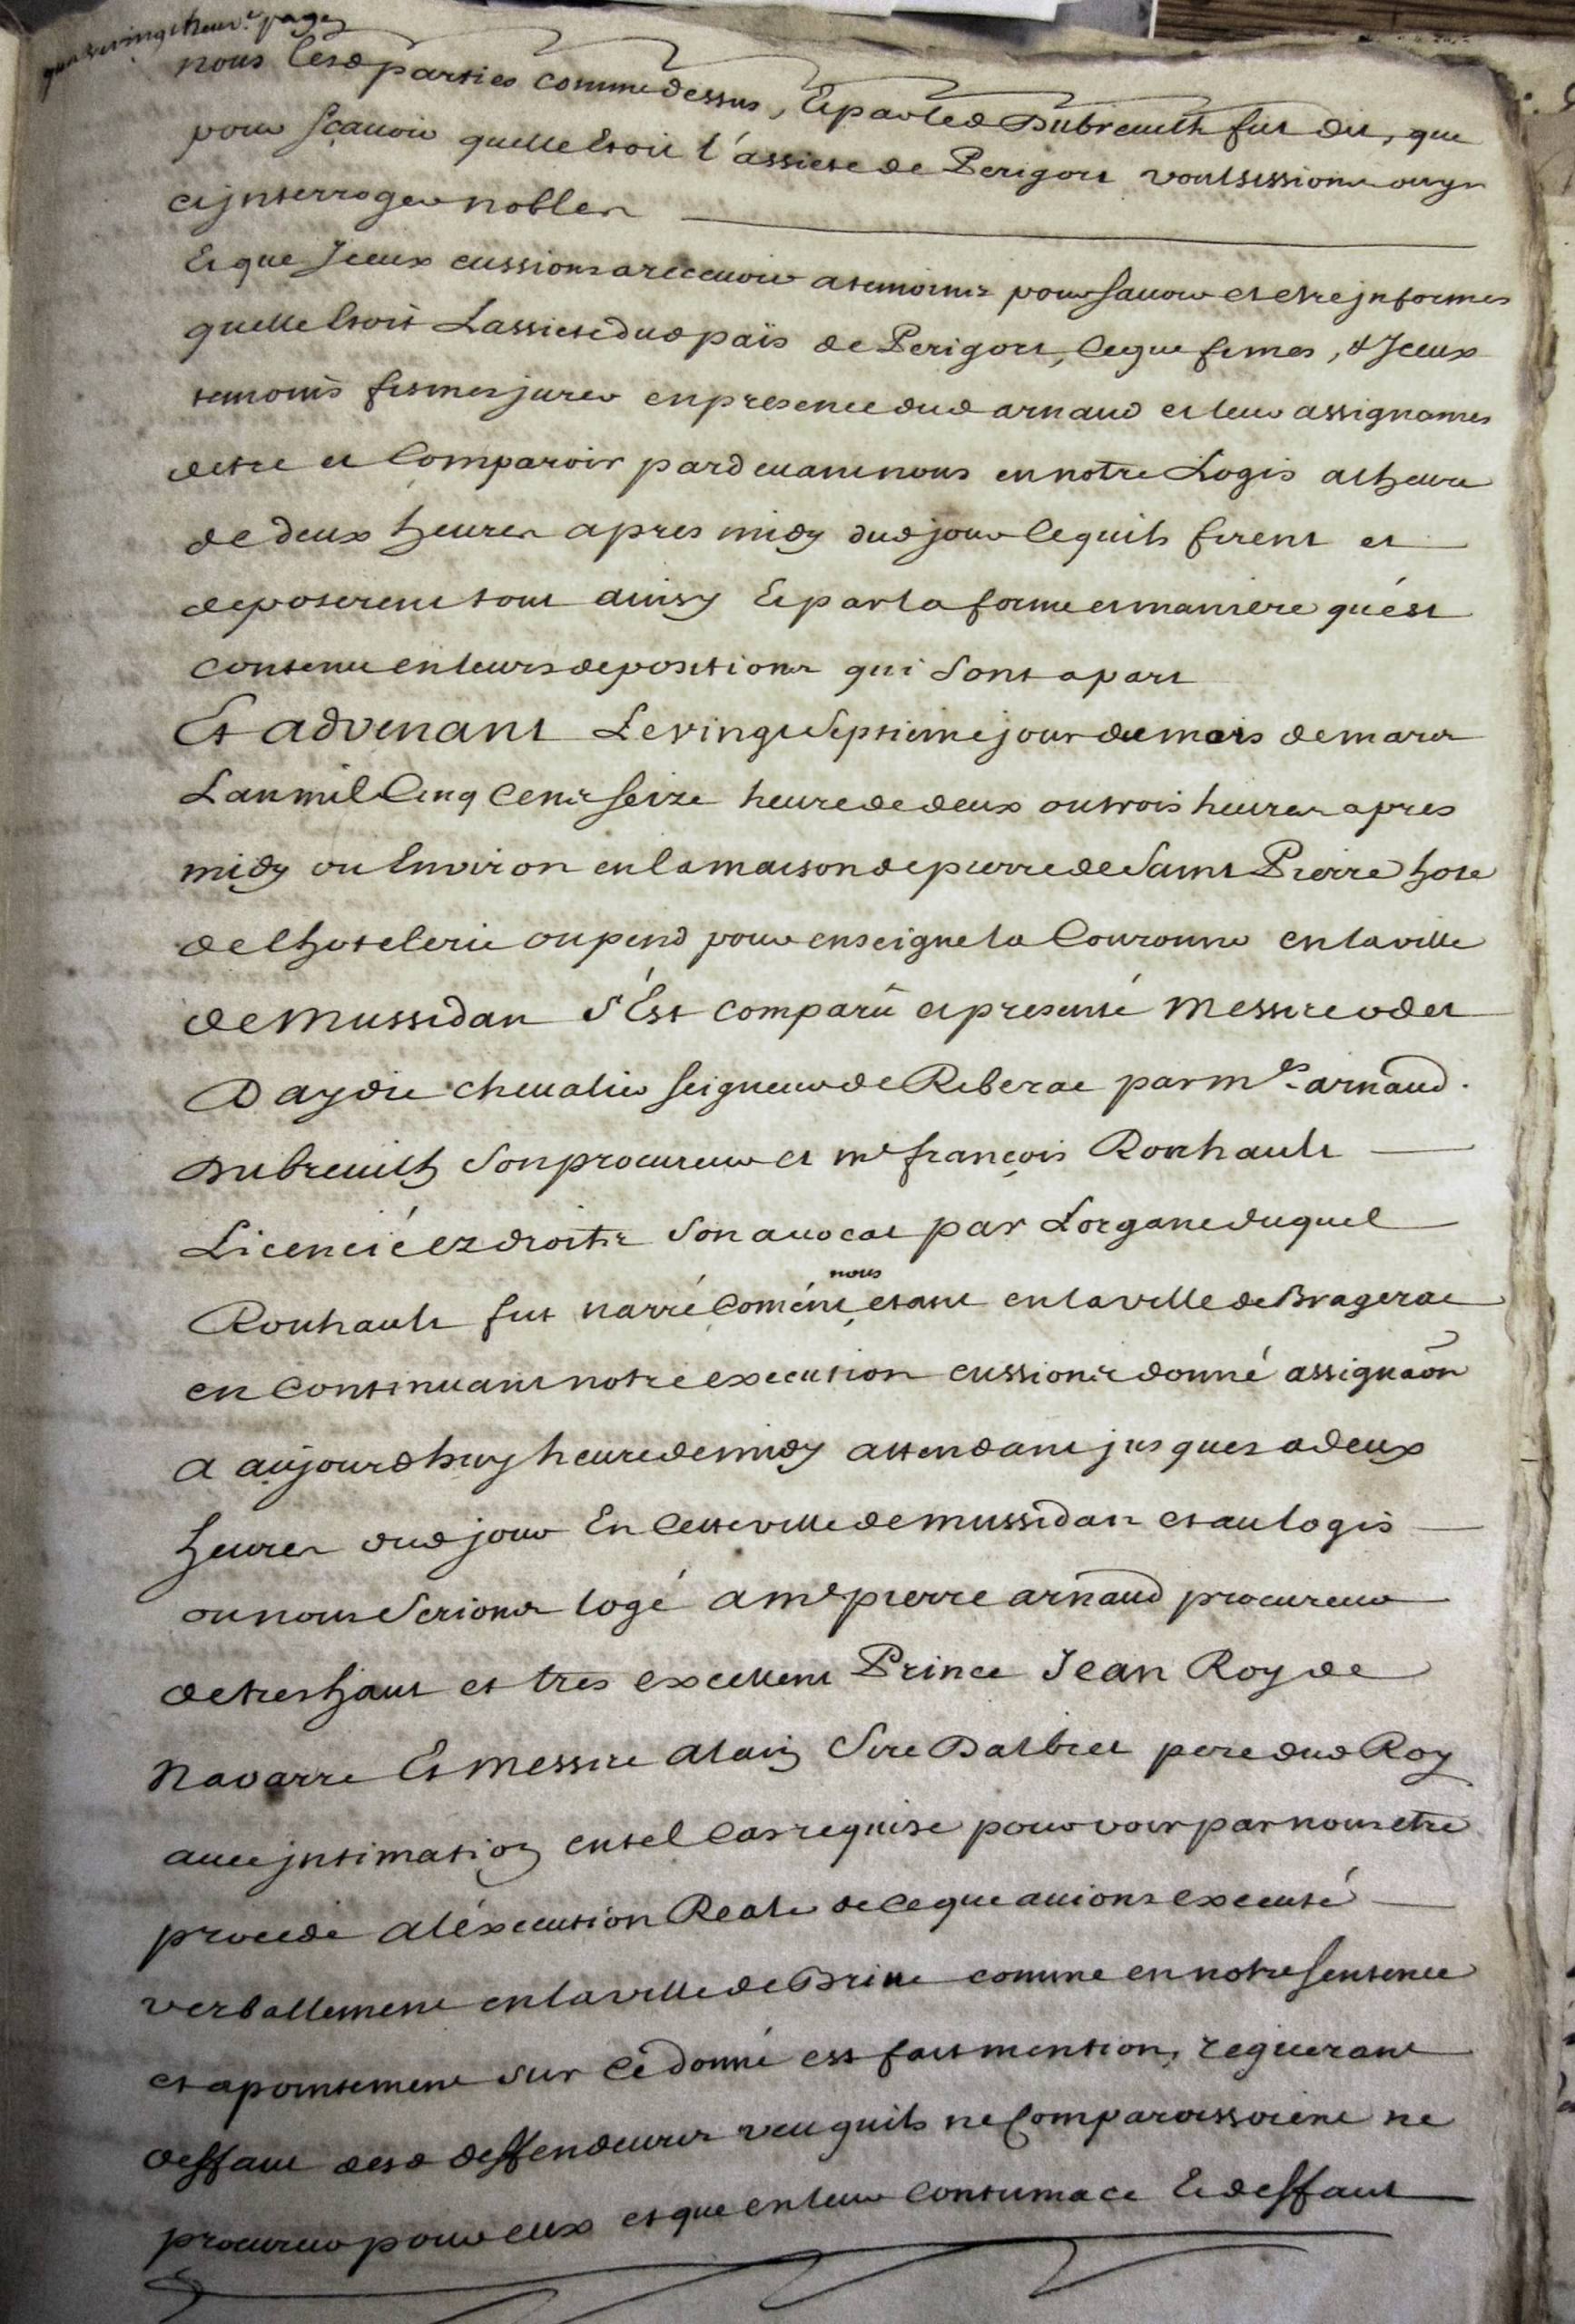 quatrevingtneuf.e page
nous lesd parties comme dessus, Et par led Dubreuilh fut dit, que
pour sçauoir quelle Estoit l'assiete de Perigort voulsissions ouyr
et jnterroger nobles
Et que Jceux eussions a receuoir a temoins pour sauoir et etre jnformes
quelle Estoit L'assiete dud païs de Perigort, Ce que fimes, & Jceux
temoins fismes jurer en presence dud arnaud et leur assignames
detre et Comparoir pardeuant nous en notre Logis a lheure
de deux heures apres midy dud jour Ce quils firent et
deposerent tout ainsy Et par la forme et maniere qu'est
contenu en leurs depositions qui sont apart
Et advenant Le vingt septieme jour du mois de mars
L'an mil Cinq Cens seize heure de deux ou trois heures apres
midy ou Environ en la maison de pierre de Saint Pierre hote
de lhotelerie ou pend pour enseigne la Couronne en la ville
de Mussidan s'Est comparû et presenté Messire odet
Daydie cheualier seigneur de Riberac par me arnaud
Dubreuilh son procureur et me françois Rouhault
Licencié ez droits son auocat par Lorgane duquel
Rouhault fut narré Coment nous etant en la ville de Bragerac
en Continuant notre execution eussions donné assignaon
a aujourdhuy heure de midy attendant jusques a deux
heures dud jour En Cette ville de Mussidan et au logis
ou nous serions logé a me pierre arnaud procureur
de tres haut et tres excellent Prince Jean Roy de
Navarre Et Messire alain Sire Dalbret pere dud Roy
auec jntimation en tel Cas requise pour voir par nous etre
procedé a l'éxecution Reale de Ce que auions executé
verballement en la ville de Brive comme en notre sentence
et apointement sur Ce donné est fait mention, requerant
deffaut desd deffendeurs veu quils ne Comparoissoient ne
procureur pour eux et que en leur Contumace Et deffaut